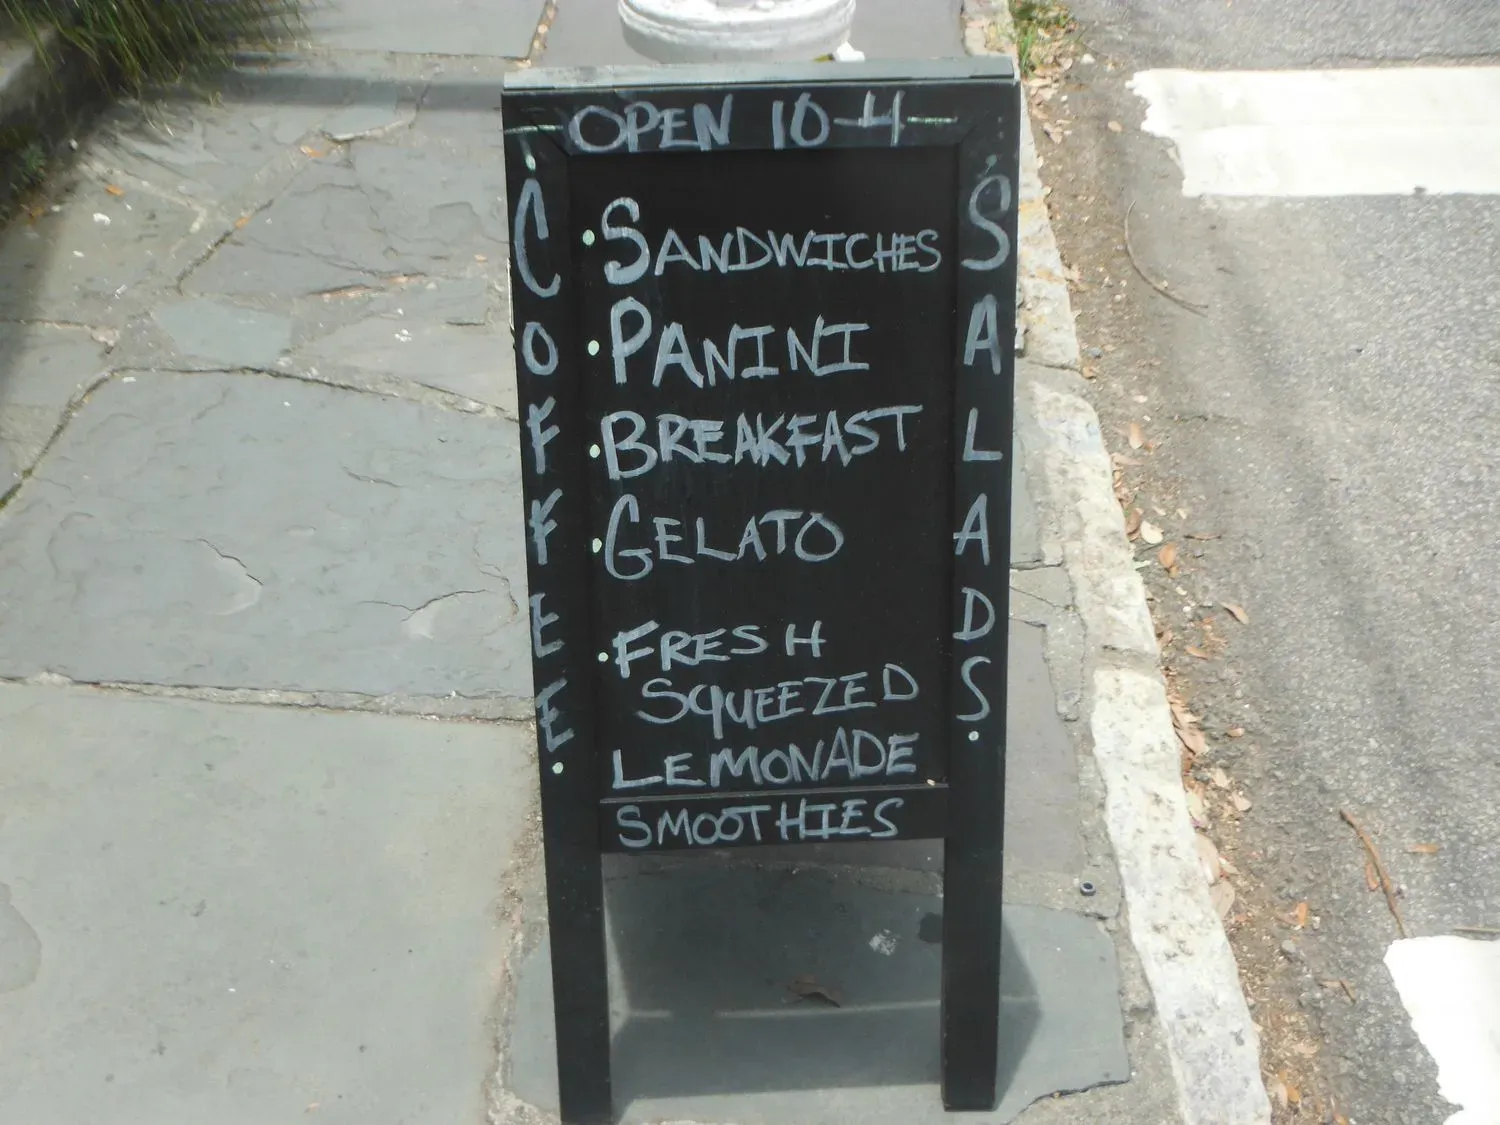 OPEN 10-4
COFFEE
• SANDWICHES
• PANINI
• BREAKFAST
• GELATO
• FRESH
SQUEEZED
LEMONADE
SMOOTHIES
SALADS